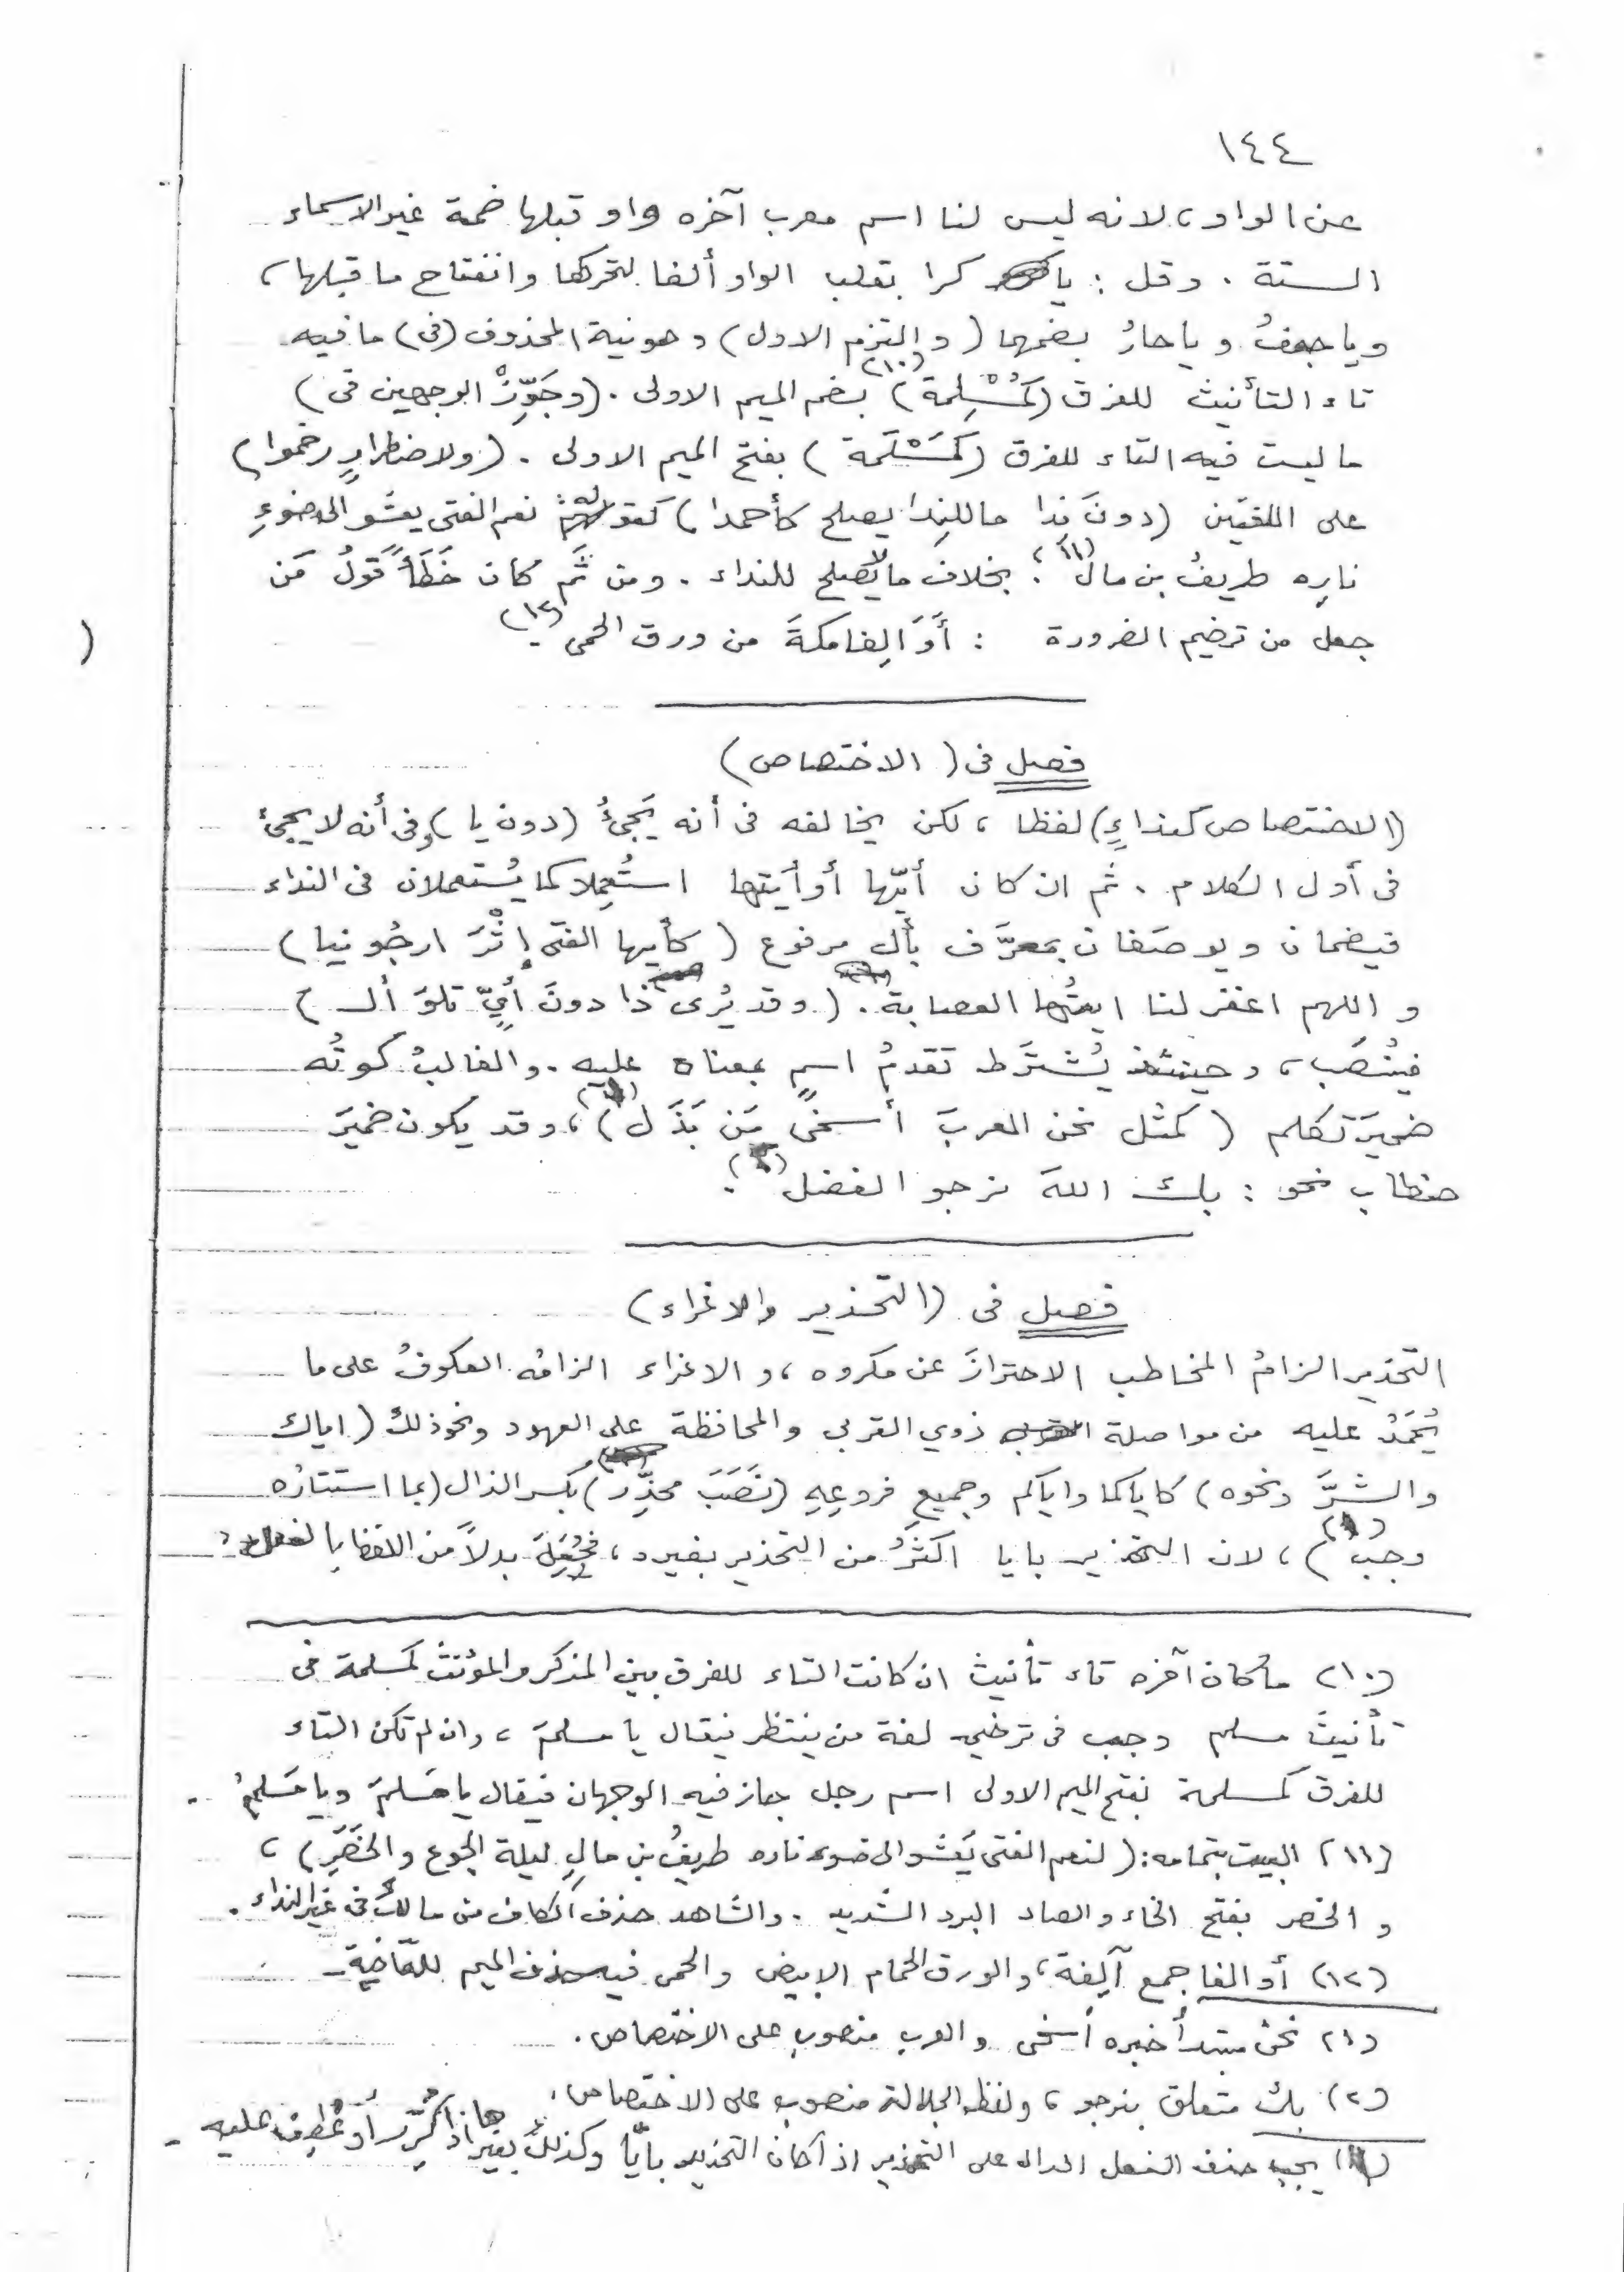 ١٤٤
عن الواو، لانه ليس لنا اسم معرب آخره واو قبلها ضمة غير الاسماء
الستة . وقل : يا كرا بقلب الواو ألفا لتحركها وانفتاح ما قبلها،
ويا جعفُ ويا حارُ بضمهما (والتزم الاول) وهو نية المحذوف (في) ما فيه
تاء التأنيث للفرق (كمُسْلِمة) (١٠) بضم الميم الاولى . (وجَوِّزْ الوجهين في)
ما ليست فيه التاء للفرق (كمَسْلَمة) بفتح الميم الاولى . (ولاضطرارٍ رخموا)
على اللغتين (دونَ نِدا ما للنِدا يصلح كأحمدا) كقوله: نعم الفتى يعشو الى ضوءِ
نارِه طريفُ بن مال (١١)؛ بخلاف ما لا يصلح للنداء . ومن ثَمَّ كان خَطَأً قولُ مَن
جعل من ترخيم الضرورة : أوَالِفا مكةَ من ورق الحمى (١٢).
فصل في (الاختصاص)
(الاختصاص كنداءٍ) لفظا ، لكن يخالفه في أنه يَجئُ (دون يا) وفي أنه لا يجئ
في أول الكلام . ثم ان كان أيّها أو أيتها استُعمِلا كما يُستعملان في النداء
فيضمان ويوصَفان بمعرَّف بأل مرفوع (كأيها الفتى بإثْرَ ارجُونيا)
و اللهم اغفر لنا ايتُها العصابة . (وقد يُرى ذا دونَ أيٍّ تلوَ أل)
فيُنصَب، وحينئذ يُشترَط تقدمُ اسمٍ بمعناه عليه . والغالبُ كونُه
ضميرَ تكلم (كمثل نحن العربَ أسخى مَن بَذَل) (١)، وقد يكون ضميرَ
خطاب نحو : بك اللهَ نرجو الفضل (٢).
فصل في (التحذير والاغراء)
التحذير الزامُ المخاطب الاحترازَ عن مكروه ، و الاغراء الزامُه العكوفُ على ما
يُحمَدُ عليه من مواصلة ذوي القربى والمحافظة على العهود ونحو ذلك (اياك
والشرَّ ونحوه) كاياكما واياكم وجميعِ فروعِهِ (نَصَبَ محذِّر) بكسر الذال (بما استتارُه
وجب) (١)، لان التحذير بايا اكثَرُ من التحذير بغيره ، فجُعِلَ بدلاً من اللفظ بالفعل
(١٠) ما كان آخره تاء تأنيث ان كانت التاء للفرق بين المذكر والمؤنث كمسلمة في
تأنيث مسلم وجب في ترخيمه لغة من ينتظر فيقال يا مسلمَ ، وان لم تكن التاء
للفرق كمسلمة بفتح الميم الاولى اسم رجل جاز فيه الوجهان فيقال يا مَسلمَ ويا مَسلمُ .
(١١) البيت بتمامه: (لنعم الفتى يَعشو الى ضوء ناره طريفُ بن مالِ ليلة الجوع والخَصَرِ) ،
و الخصر بفتح الخاء والصاد البرد الشديد . والشاهد حذف الكاف من مالك في غير النداء .
(١٢) أوالفا جمع آلِفة ، والورق الحمام الابيض والحمى فيه حذف الميم للقافية
(١) نحن مبتدأ خبره أسخى والعرب منصوب على الاختصاص .
(٢) بك متعلق بنرجو ، ولفظ الجلالة منصوب على الاختصاص .
(١) يجب حذف الفعل الدال على التحذير اذا كان التحذير بايّا وكذلك بغيرها اذا كُرِّر أو عُطِف عليه